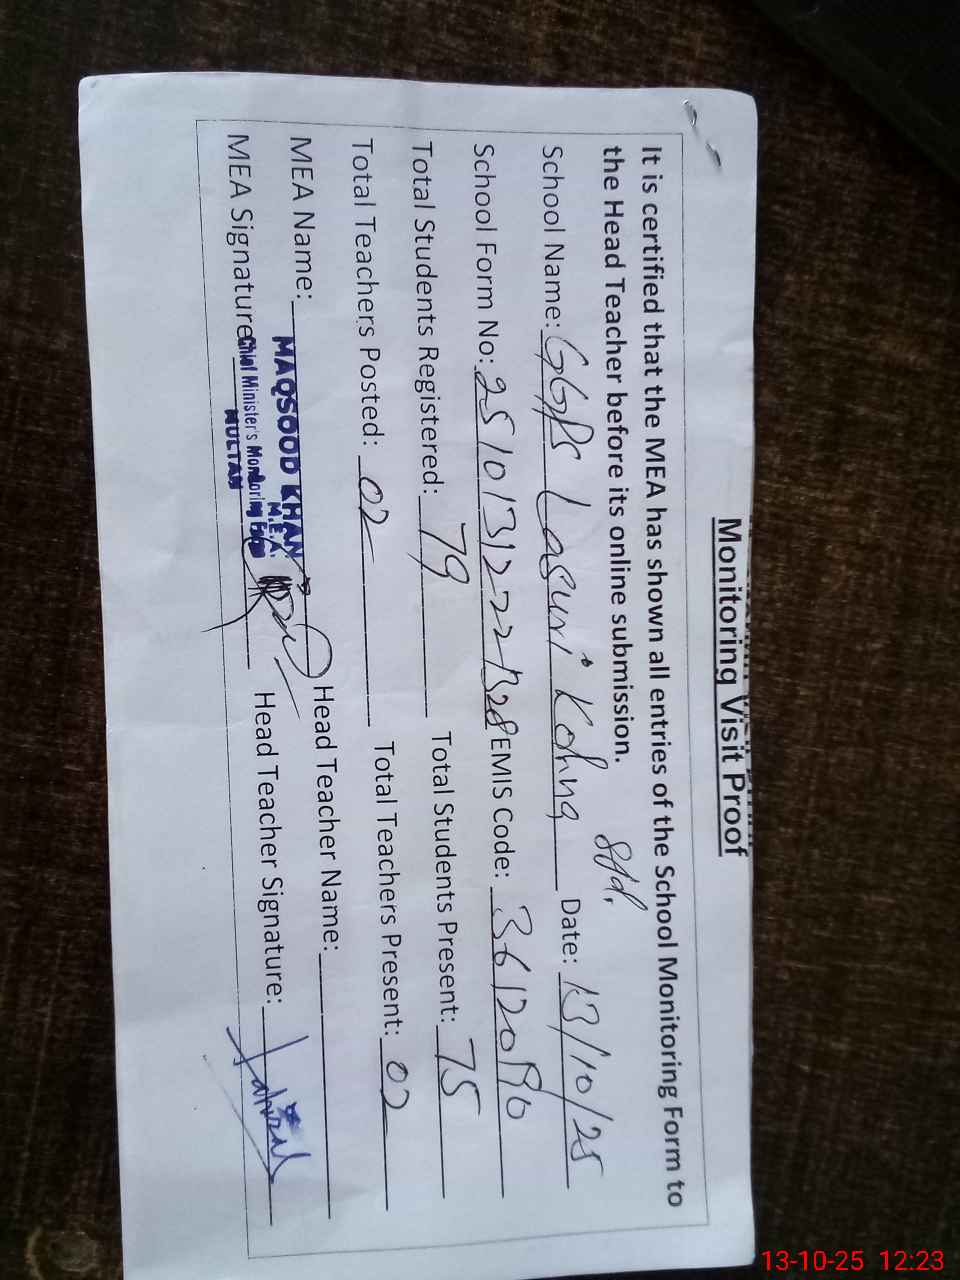 Monitoring Visit Proof
It is certified that the MEA has shown all entries of the School Monitoring Form to
the Head Teacher before its online submission.
School Name: GGPS Lasuri Kohna Sdd. Date: 13/10/25
School Form No: EMIS Code:
Total Students Registered: 79 Total Students Present: 75
Total Teachers Posted: 02 Total Teachers Present: 02
MEA Name: MAQSOOD KHAN Head Teacher Name:
M.E.A.
MEA Signature Chief Minister's Monitoring Force Head Teacher Signature:
MULTAN
13-10-25 12:23